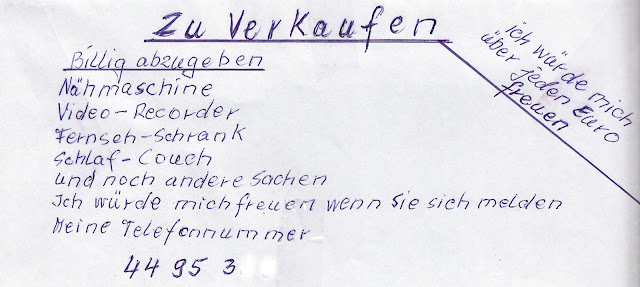 Zu Verkaufen
ich würde mich
über jeden Euro
freuen
Billig abzugeben
Nähmaschine
Video-Recorder
Fernseh-Schrank
Schlaf-Couch
und noch andere Sachen
Ich würde mich freuen wenn Sie sich melden
Meine Telefonnummer
44 95 3